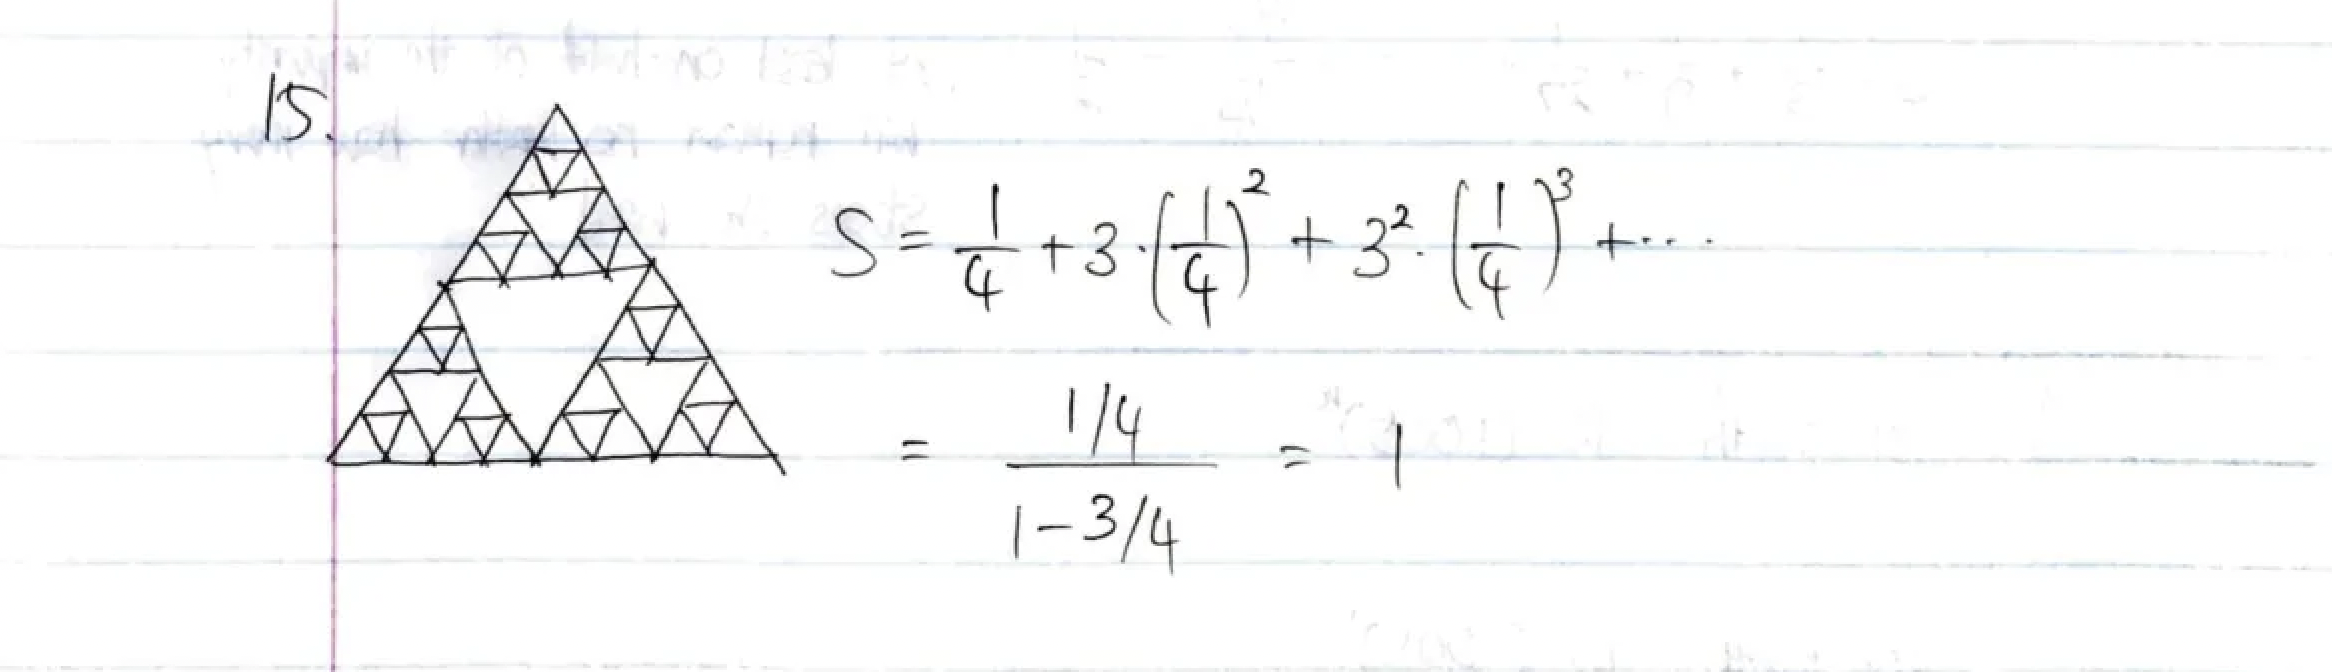 15.
S = 1/4 + 3·(1/4)² + 3²·(1/4)³ + ···
= (1/4)/(1-3/4) = 1